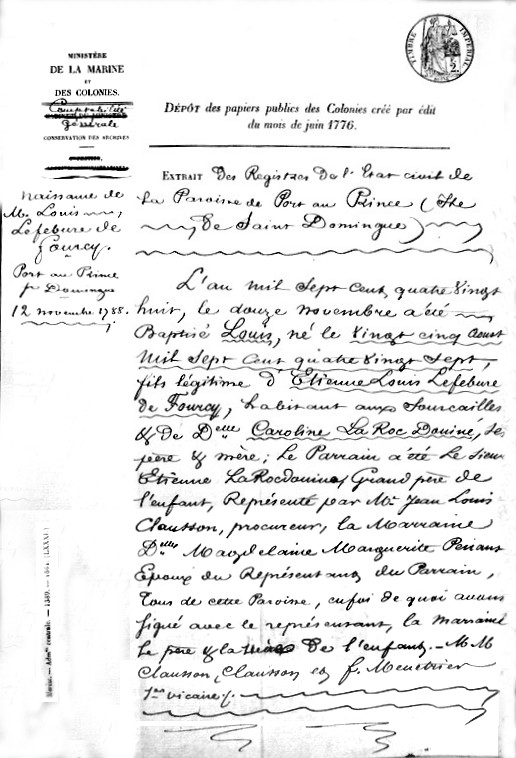 MINISTÈRE
DE LA MARINE
ET
DES COLONIES.
Comptabilité
générale
CONSERVATION DES ARCHIVES
TIMBRE IMPÉRIAL
2
DÉPÔT des papiers publics des Colonies créé par édit
du mois de juin 1776.
EXTRAIT Des Registres De l'Etat civil de
la Paroisse de Port au Prince (Ile
De Saint Domingue)
Naissance de
Mr. Louis
Lefebure de
Fourcy.
Port au Prince
St Domingue
12 novembre 1788.
L'an mil sept cent quatre vingt
huit, le douze novembre a été
Baptisé Louis, né le Vingt cinq Aout
Mil Sept Cent quatre Vingt Sept,
fils légitime d'Etienne Louis Lefebure
de Fourcy, habitant aux Fourcailles
& de Dlle Caroline La Roc Douiné, ses
père & mère; Le Parrain a été Le Sieur
Etienne LaRocdouiné, Grand père de
l'enfant, Représenté par Mr. Jean Louis
Clausson, procureur, la Marraine
Dlle Magdelaine Marguerite
Epoux du Représentant du Parrain,
Tous de cette Paroisse, en foi de quoi avons
signé avec le représentant, la marraine
Le père & la mère De l'enfant. - M M
Clausson, Clausson et f. Menetrier
vicaire /.
Marine. — Admon centrale. — 1389.